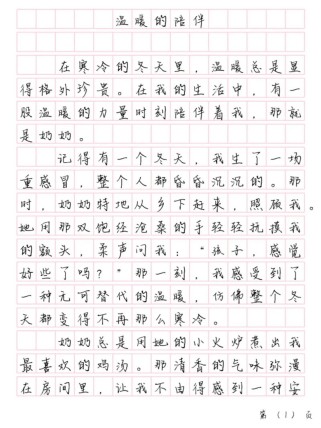 温暖的陪伴
在寒冷的冬天里，温暖总是显
得格外珍贵。在我的生活中，有一
股温暖的力量时刻陪伴着我，那就
是奶奶。
记得有一个冬天，我生了一场
重感冒，整个人都昏昏沉沉的。那
时，奶奶特地从乡下赶来，照顾我。
她用那双饱经沧桑的手轻轻抚摸我
的额头，柔声问我：“孩子，感觉
好些了吗？”那一刻，我感受到了
一种无可替代的温暖，仿佛整个冬
天都变得不再那么寒冷。
奶奶总是用她的小火炉煮出我
最喜欢的鸡汤。那清香的气味弥漫
在房间里，让我不由得感到一种安
第（1）页